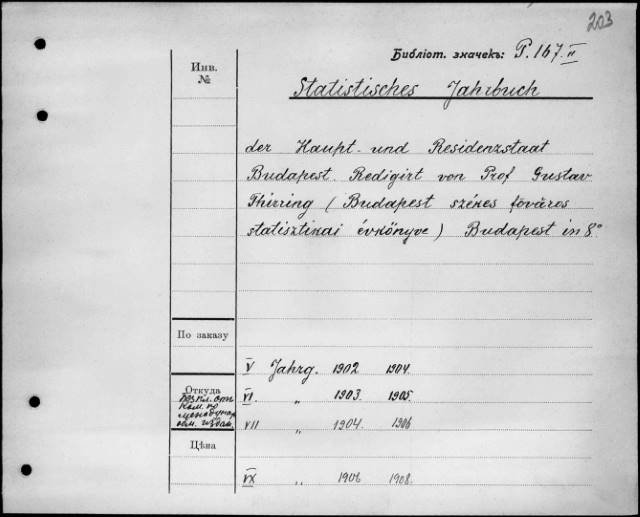 203
Библіот. значекъ: P. 167 II
Инв.
№
Statistisches Jahrbuch
der Haupt- und Residenzstaat
Budapest. Redigirt von Prof Gustav
Thirring (Budapest székes főváros
statisztikai évkönyve) Budapest in 8°
По заказу
V Jahrg. 1902 1904.
Откуда
VI „ 1903. 1905.
Ком. по
междунар.
VII „ 1904. 1906
Цѣна
IX „ 1906 1908.